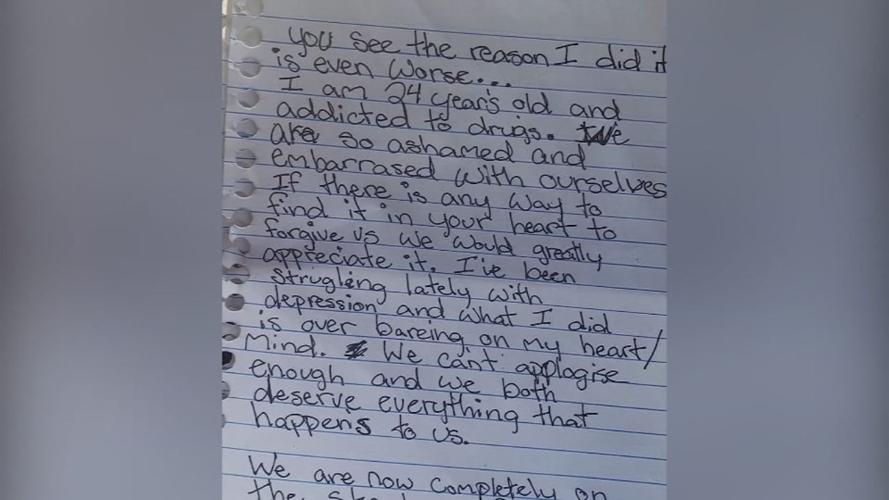 you see the reason I did it
is even worse...
I am 24 year's old and
addicted to drugs. We
are so ashamed and
embarrased with ourselves
If there is any way to
find it in your heart to
forgive us we would greatly
appreciate it. I've been
strugling lately with
depression and what I did
is over bareing on my heart/
Mind. We can't applogise
enough and we both
deserve everything that
happens to us.
We are now completely on
the